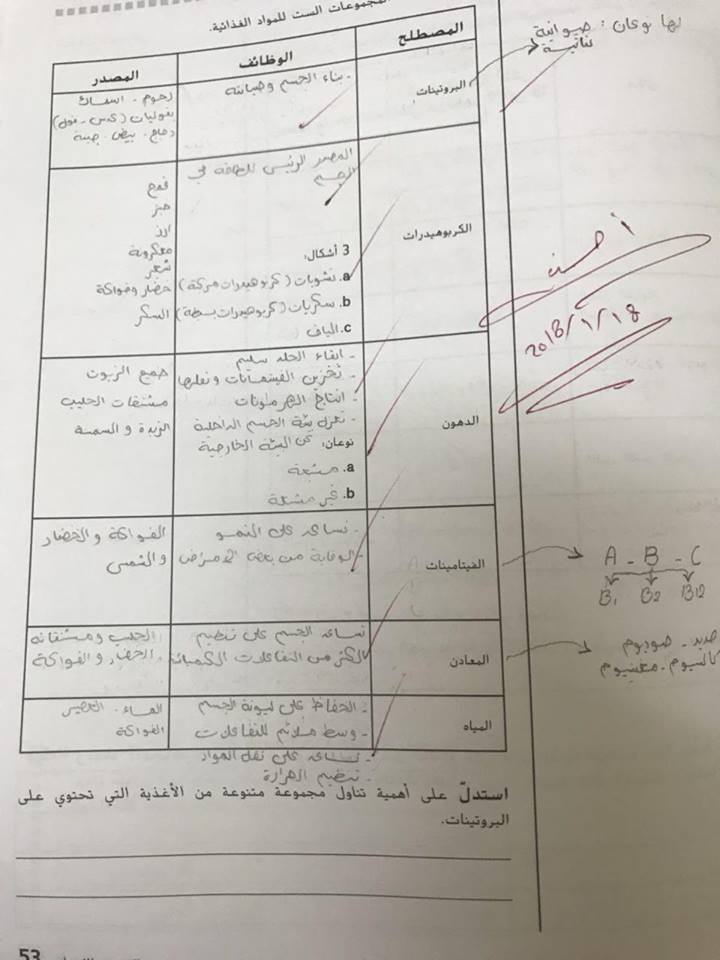 المجموعات الست للمواد الغذائية.
لها نوعان: حيوانية
نباتية
المصطلح
الوظائف
المصدر
البروتينات
- بناء الجسم وصيانته
لحوم - اسماك
بقوليات (عدس - فول)
دجاج - بيض - جبنة
الكربوهيدرات
المصدر الرئيس للطاقة في
الجسم
3 أشكال:
a. نشويات (كربوهيدرات مركبة)
b. سكريات (كربوهيدرات بسيطة)
c. الياف
قمح
خبز
ارز
معكرونة
شعير
خضار وفواكة
السكر
الدهون
- ابقاء الجلد سليم
- تخزين الفيتامينات ونقلها
- انتاج الهرمونات
- تعزل بيئة الجسم الداخلية
نوعان: عن البيئة الخارجية
a. مشبعة
b. غير مشبعة
جميع الزيوت
مشتقات الحليب
الزبدة و السمنة
الفيتامينات
- تساعد على النمو
- الوقاية من بعض الامراض
الفواكة و الخضار
و الشمس
A - B - C
B1 B2 B12
المعادن
تساعد الجسم على تنظيم
الكثير من التفاعلات الكيميائية
الحليب ومشتقاته
الخضار و الفواكة
حديد - صوديوم
كالسيوم - مغنيسيوم
المياه
- الحفاظ على ليونة الجسم
- وسط ملائم للتفاعلات
- تساعد على نقل المواد
- تنظيم الحرارة
الماء - العصير
الفواكة
أحسنت
2018/1/18
استدلّ على أهمية تناول مجموعة متنوعة من الأغذية التي تحتوي على
البروتينات.
53